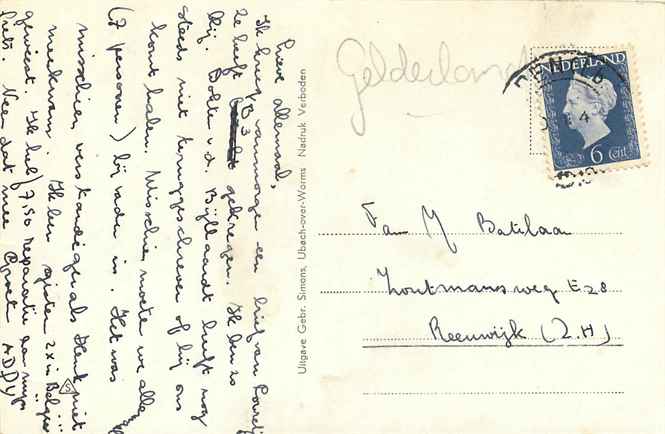 Lieve allemaal,
Ik kreeg vanmorgen een brief van
ze heeft B3 gekregen. Ik ben zo
blij. Dolle v.d. Bijllaardt heeft nog
steeds niet teruggeschreven of hij ons
komt halen. Misschien moeten we alle
(7 personen) bij vader in. Het was
misschien verstandiger als Henk niet
meekwam. Ik ben gisteren 2x in België
geweest. Ik heb 7,50 reparatie aan mijn
fiets. Neen dat mee Groet ADDY
Uitgave Gebr. Simons, Ubach-over-Worms Nadruk Verboden
Gelderland
NEDERLAND
6 Cent
Fam M Batelaan
Houtmansweg E28
Reeuwijk (Z.H)